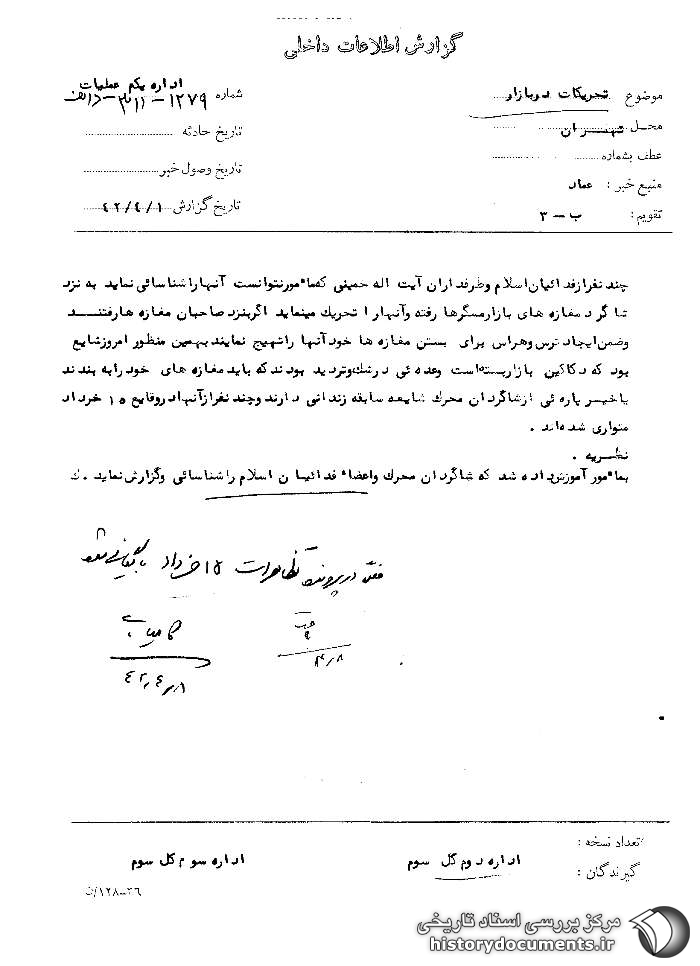 گزارش اطلاعات داخلی
موضوع تحریکات در بازار
محل تهران
عطف بشماره
منبع خبر : عماد
تقویم : ب - ۳
اداره یکم عملیات
شماره ۱۲۷۹ - ۳۱۱ - ۱۵ الف
تاریخ حادثه
تاریخ وصول خبر
تاریخ گزارش ۴۲/۴/۱
چند نفر از فدائیان اسلام و طرفداران آیت اله خمینی که مأمور نتوانست آنها را شناسائی نماید به نزد
شاگرد مغازه های بازار مسگرها رفته و آنها را تحریک مینماید اگر بنزد صاحبان مغازه ها رفتند
و ضمن ایجاد ترس و هراس برای بستن مغازه ها خود آنها را تهیج نمایند بهمین منظور امروز شایع
بود که دکاکین بازار بسته است وعده ئی در شک و تردید بودند که باید مغازه های خود را به بندند
یا خیر پاره ئی از شاگردان محرک شایعه سابقه زندانی دارند و چند نفر از آنها در وقایع ۱۵ خرداد
متواری شده اند .
نظریه .
بمأمور آموزش داده شد که شاگردان محرک و اعضاء فدائیان اسلام را شناسائی و گزارش نماید . ک
در پرونده تظاهرات ۱۵ خرداد بایگانی شود
۴/۸
۴۲/۴/۸
تعداد نسخه :
گیرندگان :
اداره دوم کل سوم
اداره سوم کل سوم
۳۶-۱۲۸/ت
مرکز بررسی اسناد تاریخی
historydocuments.ir